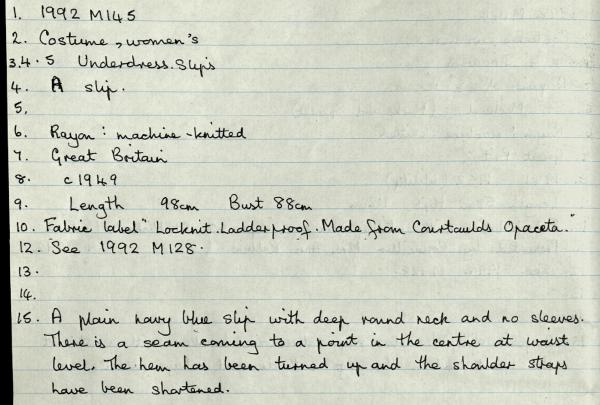 1. 1992 M145
2. Costume, women's
3.4.5 Underdress. Slips
4. A slip.
5.
6. Rayon: machine-knitted
7. Great Britain
8. c1949
9. Length 98cm Bust 88cm
10. Fabric label "Locknit. Ladderproof. Made from Courtaulds Opaceta."
12. See 1992 M128.
13.
14.
15. A plain navy blue slip with deep round neck and no sleeves.
There is a seam coming to a point in the centre at waist
level. The hem has been turned up and the shoulder straps
have been shortened.